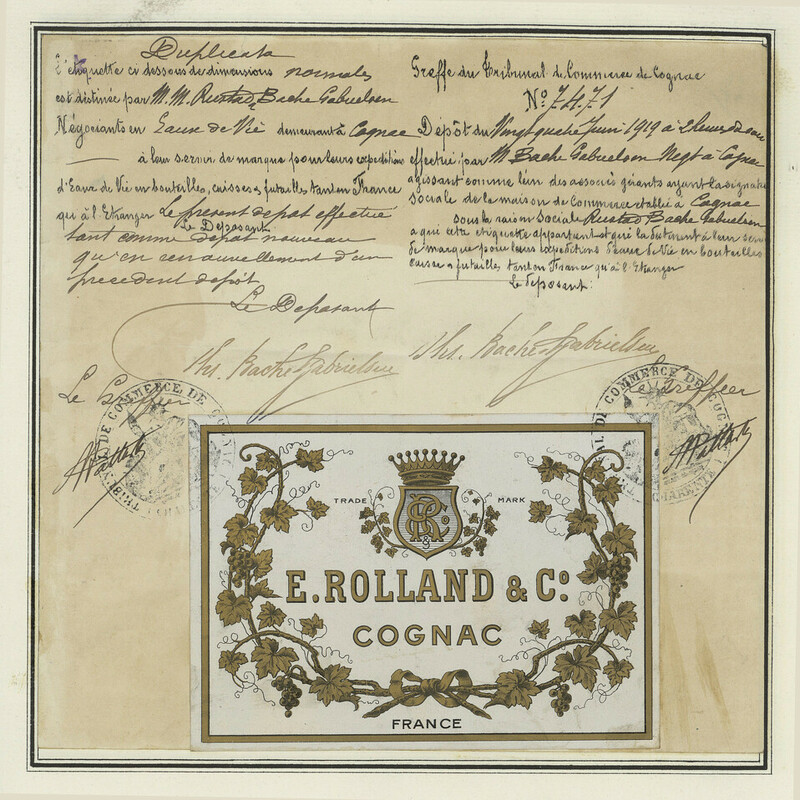 Duplicata
L'étiquette ci dessous de dimensions normales
est destinée par M.M. Rustad Bache Gabrielsen
Négociants en Eaux de Vie demeurant à Cognac
à leur servir de marque pour leurs expéditions
d'Eaux de Vie en bouteilles, caisses & futailles tant en France
qu'à l'Etranger Le présent dépôt effectué
Le Deposant
tant comme dépôt nouveau
qu'en renouvellement d'un
précédent dépôt
Le Deposant
Ths. Bache-Gabrielsen
Le Greffier
Greffe du Tribunal de Commerce de Cognac
No. 7471
Dépôt du Vingt quatre Juin 1919 à 2 heures
effectué par M Bache Gabrielsen Negt à Cognac
agissant comme l'un des associés gérants ayant la signature
sociale de la maison de Commerce établie à Cognac
sous la raison Sociale Rustad Bache Gabrielsen
a qui cette etiquette appartient et qui la destinent à leur servir
de marque pour leurs expeditions d'eaux de Vie en bouteilles
caisses & futailles tant en France qu'à l'Etranger
Le deposant:
Ths. Bache-Gabrielsen
Le Greffier
TRIBUNAL DE COMMERCE DE COGNAC
CHARENTE
TRADE MARK
R & Co
E. ROLLAND & Co.
COGNAC
FRANCE